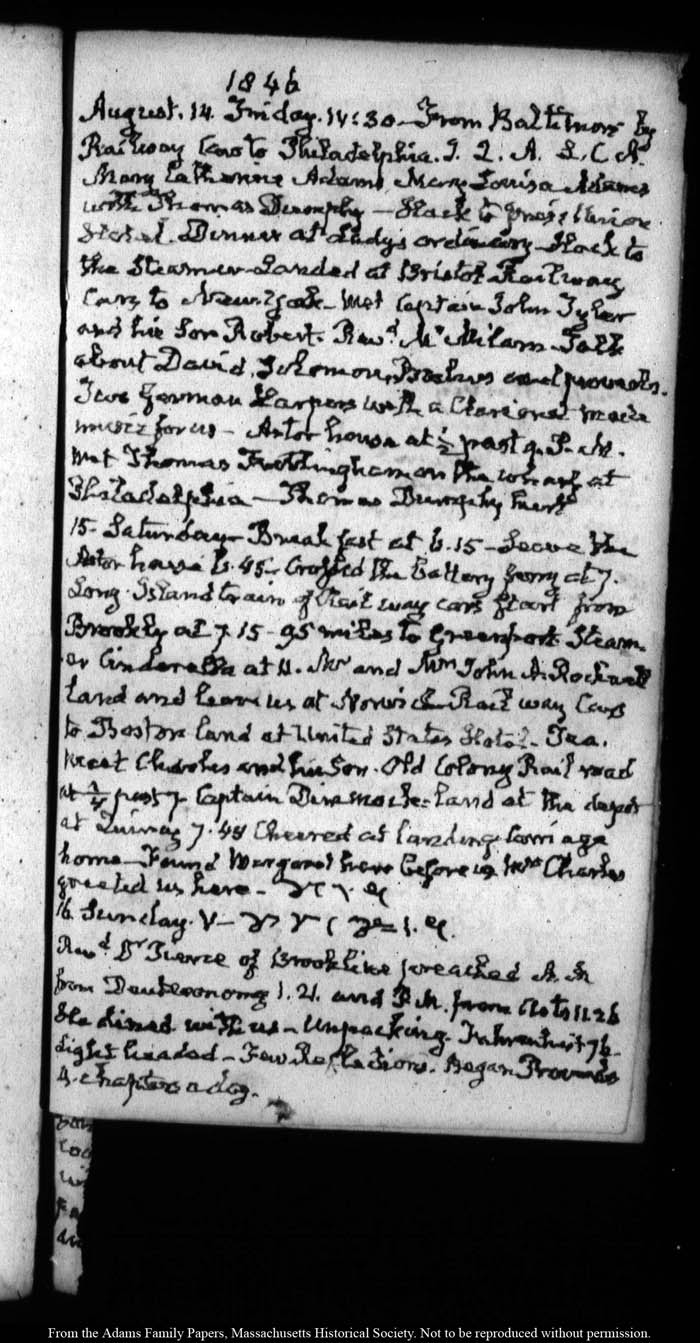 1846
August. 14. Friday. IV:30 - From Baltimore by
Railway Cars to Philadelphia. J. Q. A. L. C. A.
Mary Catherine Adams, Mary Louisa Adams
with Thomas Dunphy — Hack to Union
Hotel. Dinner at Lady's ordinary - Hack to
the Steamer - Landed at Bristol Railway
Cars to New-York - Met Captain John Tyler
and his Son Robert. Revd. Mr Milam - Talk
about David, Solomon, Psalms and proverbs.
Two German Harpers with a Clarionet made
music for us - Astor house at ½ past 9. P.M.
Met Thomas Frothingham on the wharf at
Philadelphia — Thomas Dunphy
15. Saturday - Breakfast at 6.15 - Leave the
Astor house 6.45 - Crossed the Battery ferry at 7.
Long-Island train of Railway cars start from
Brookly at 7.15 - 95 miles to Greenport. Steam-
er Cinderella at 11. Mr and Mrs John A. Rockwell
land and leave us at Norwich - Railway Cars
to Boston land at United States Hotel - Tea.
meet Charles and his Son. Old Colony Rail road
at ¼ past 7 Captain land at the depot
at Quincy 7.48 Cheered at landing - Carriage
home - Found Margaret here before us Mrs Charles
greeted us here -
16. Sunday. V -
Revd Dr Pierce of Brookline preached A.M
from Deuteronomy 1.21. and P.M. from Acts 11.26
He dined with us - Unpacking. Fahrenheit 76 -
Light headed - Few Reflections. Began Proverbs
4. chapters a day.
From the Adams Family Papers, Massachusetts Historical Society. Not to be reproduced without permission.